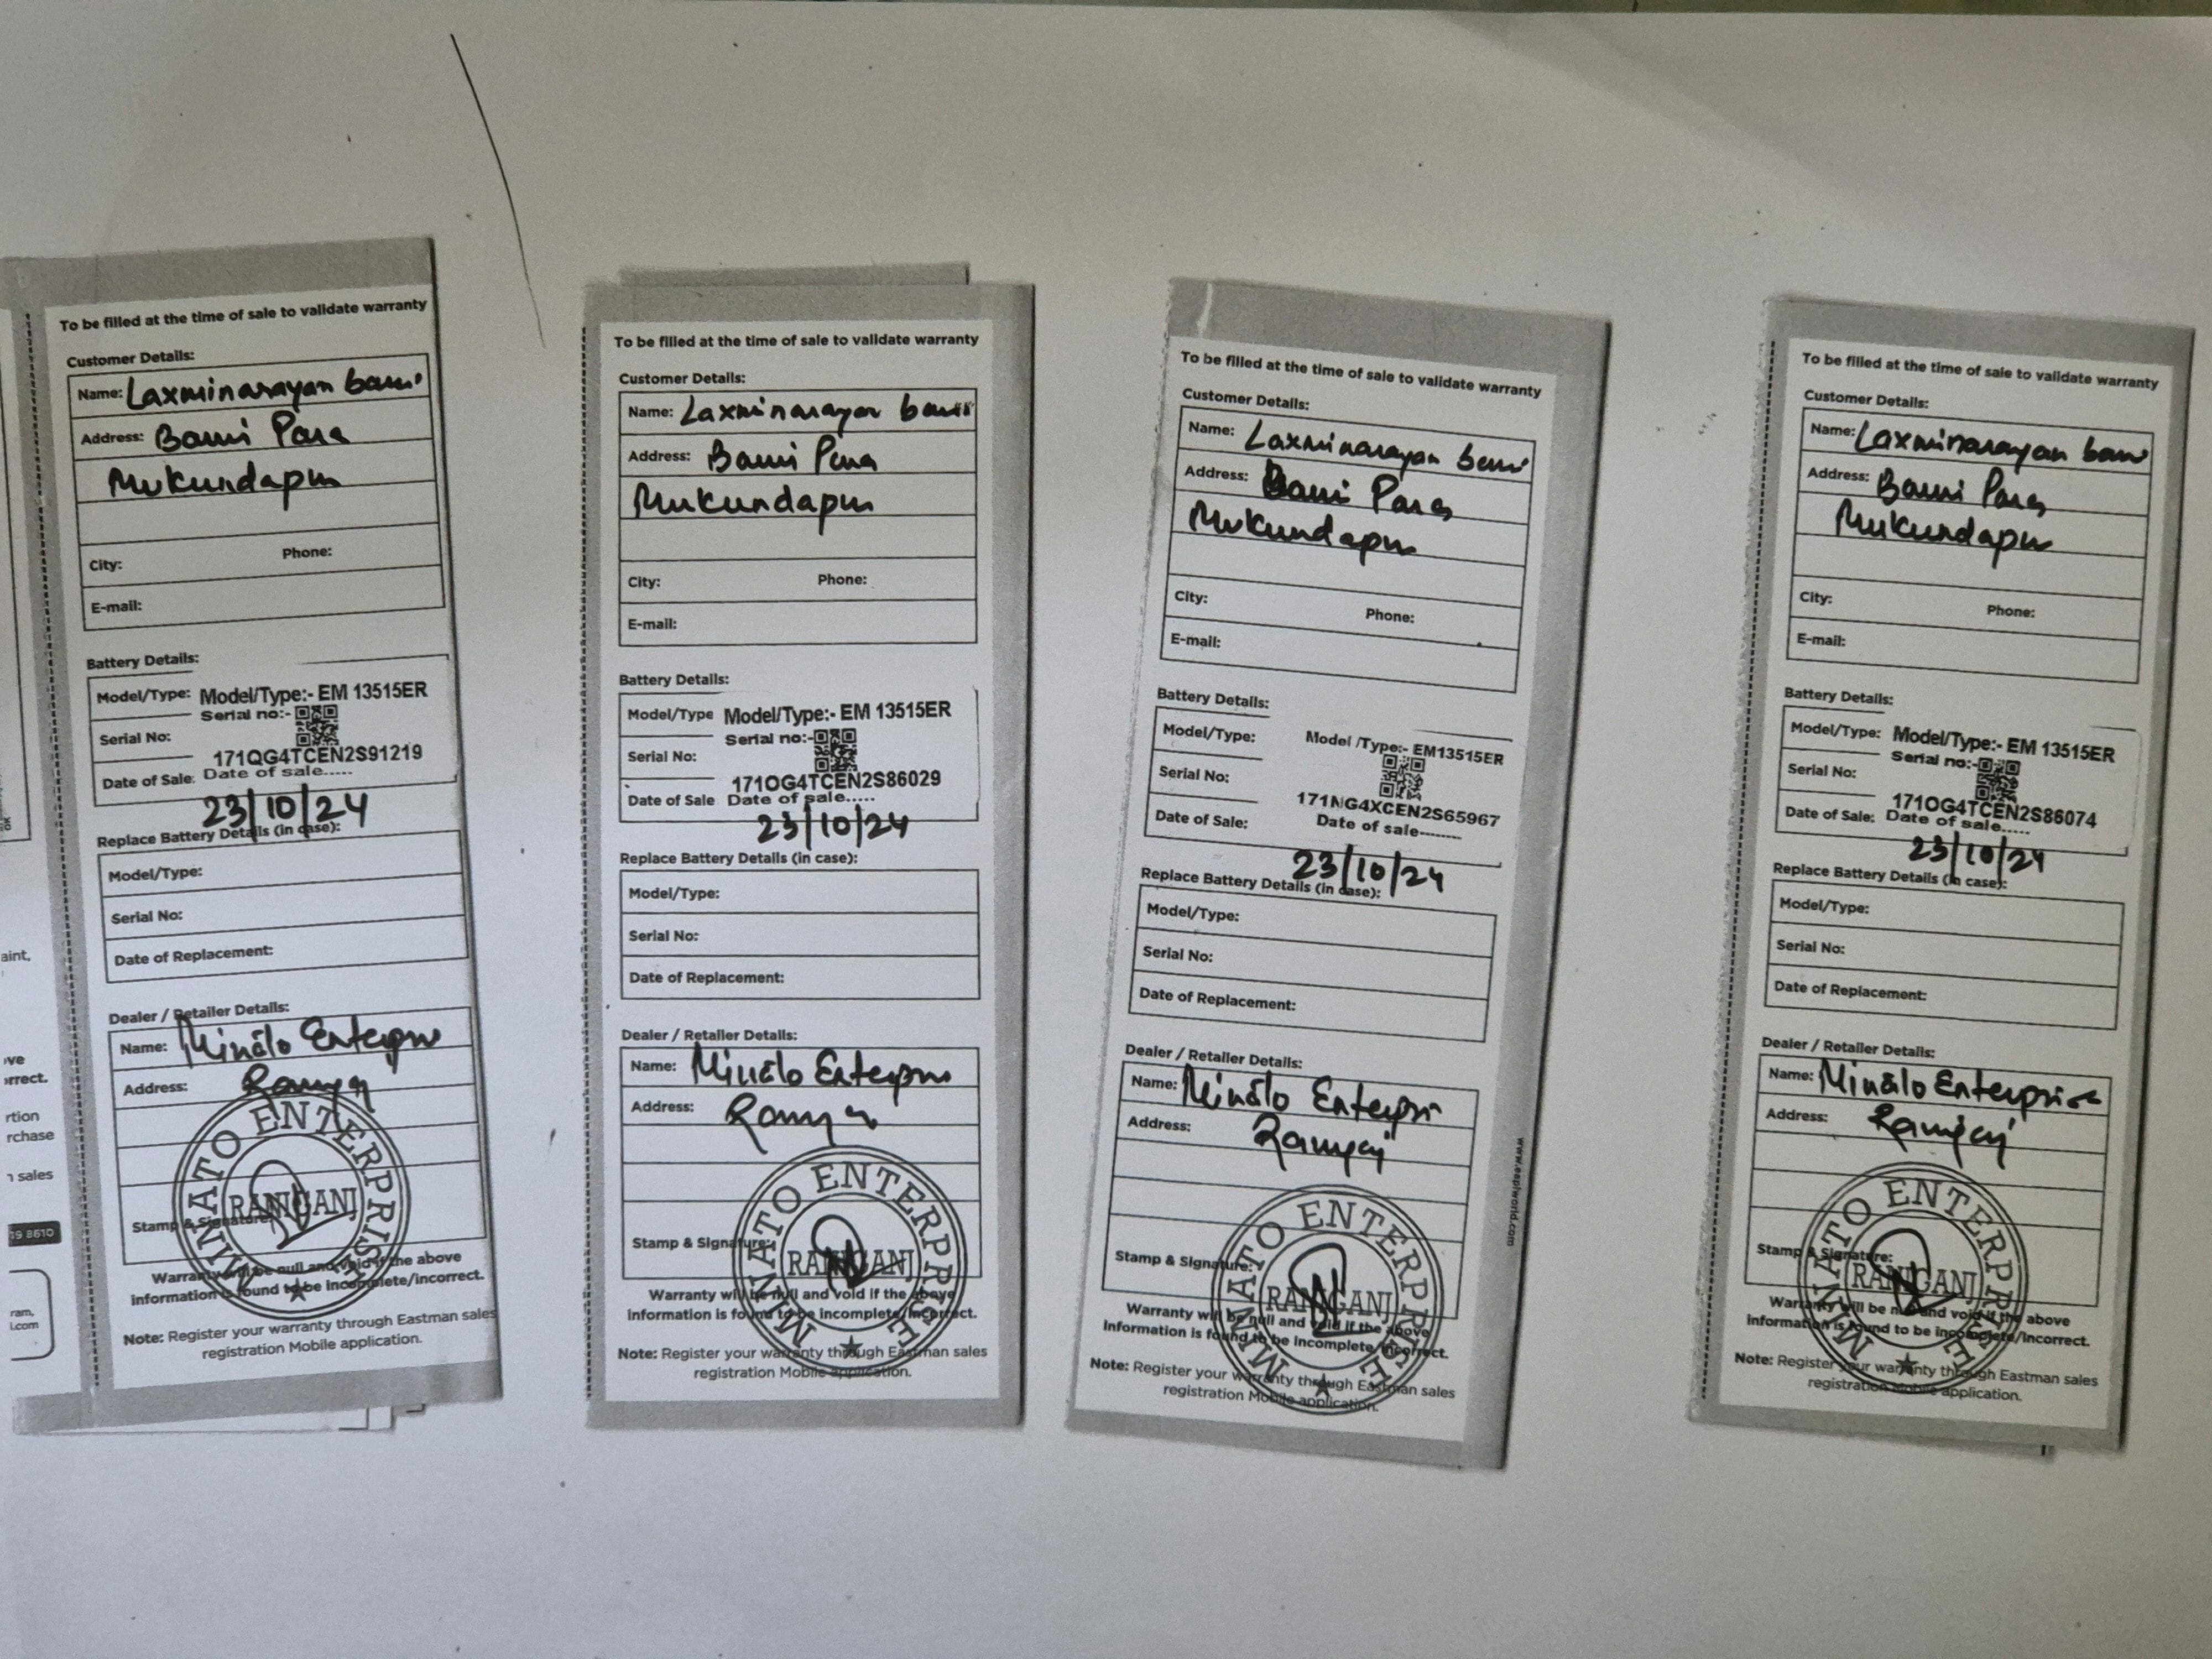 To be filled at the time of sale to validate warranty
Customer Details:
Name: Laxminarayan bauri
Address: Bauri Para
Mukundapur
City: Phone:
E-mail:
Battery Details:
Model/Type: Model/Type:- EM 13515ER
Serial no:-
Serial No:
171QG4TCEN2S91219
Date of Sale: Date of sale.....
23/10/24
Replace Battery Details (in case):
Model/Type:
Serial No:
Date of Replacement:
Dealer / Retailer Details:
Name: Minato Enterpri
Address:
MINATO ENTERPRISE
RANIGANJ
Stamp & Signature:
Warranty will be null and void if the above
Information is found to be incomplete/incorrect.
Note: Register your warranty through Eastman sales
registration Mobile application.
aint,
ve
orrect.
rtion
rchase
n sales
19 8610
ram,
l.com
To be filled at the time of sale to validate warranty
Customer Details:
Name: Laxminarayan bauri
Address: Bauri Para
Mukundapur
City: Phone:
E-mail:
Battery Details:
Model/Type Model/Type:- EM 13515ER
Serial no:-
Serial No:
171OG4TCEN2S86029
Date of Sale Date of sale.....
23/10/24
Replace Battery Details (in case):
Model/Type:
Serial No:
Date of Replacement:
Dealer / Retailer Details:
Name: Minato Enterpri
Address:
MINATO ENTERPRISE
RANIGANJ
Stamp & Signature:
Warranty will be null and void if the above
Information is found to be incomplete/incorrect.
Note: Register your warranty through Eastman sales
registration Mobile application.
To be filled at the time of sale to validate warranty
Customer Details:
Name: Laxminarayan bauri
Address: Bauri Para
Mukundapur
City: Phone:
E-mail:
Battery Details:
Model/Type: Model /Type:- EM13515ER
Serial No:
171NG4XCEN2S65967
Date of Sale: Date of sale--------
23/10/24
Replace Battery Details (in case):
Model/Type:
Serial No:
Date of Replacement:
Dealer / Retailer Details:
Name: Minato Enterpri
Address:
MINATO ENTERPRISE
RANIGANJ
Stamp & Signature:
Warranty will be null and void if the above
Information is found to be incomplete/incorrect.
Note: Register your warranty through Eastman sales
registration Mobile application.
www.eaplworld.com
To be filled at the time of sale to validate warranty
Customer Details:
Name: Laxminarayan bauri
Address: Bauri Para
Mukundapur
City: Phone:
E-mail:
Battery Details:
Model/Type: Model/Type:- EM 13515ER
Serial no:-
Serial No:
171OG4TCEN2S86074
Date of Sale: Date of sale.....
23/10/24
Replace Battery Details (in case):
Model/Type:
Serial No:
Date of Replacement:
Dealer / Retailer Details:
Name: Minato Enterprise
Address:
MINATO ENTERPRISE
RANIGANJ
Stamp & Signature:
Warranty will be null and void if the above
Information is found to be incomplete/incorrect.
Note: Register your warranty through Eastman sales
registration Mobile application.